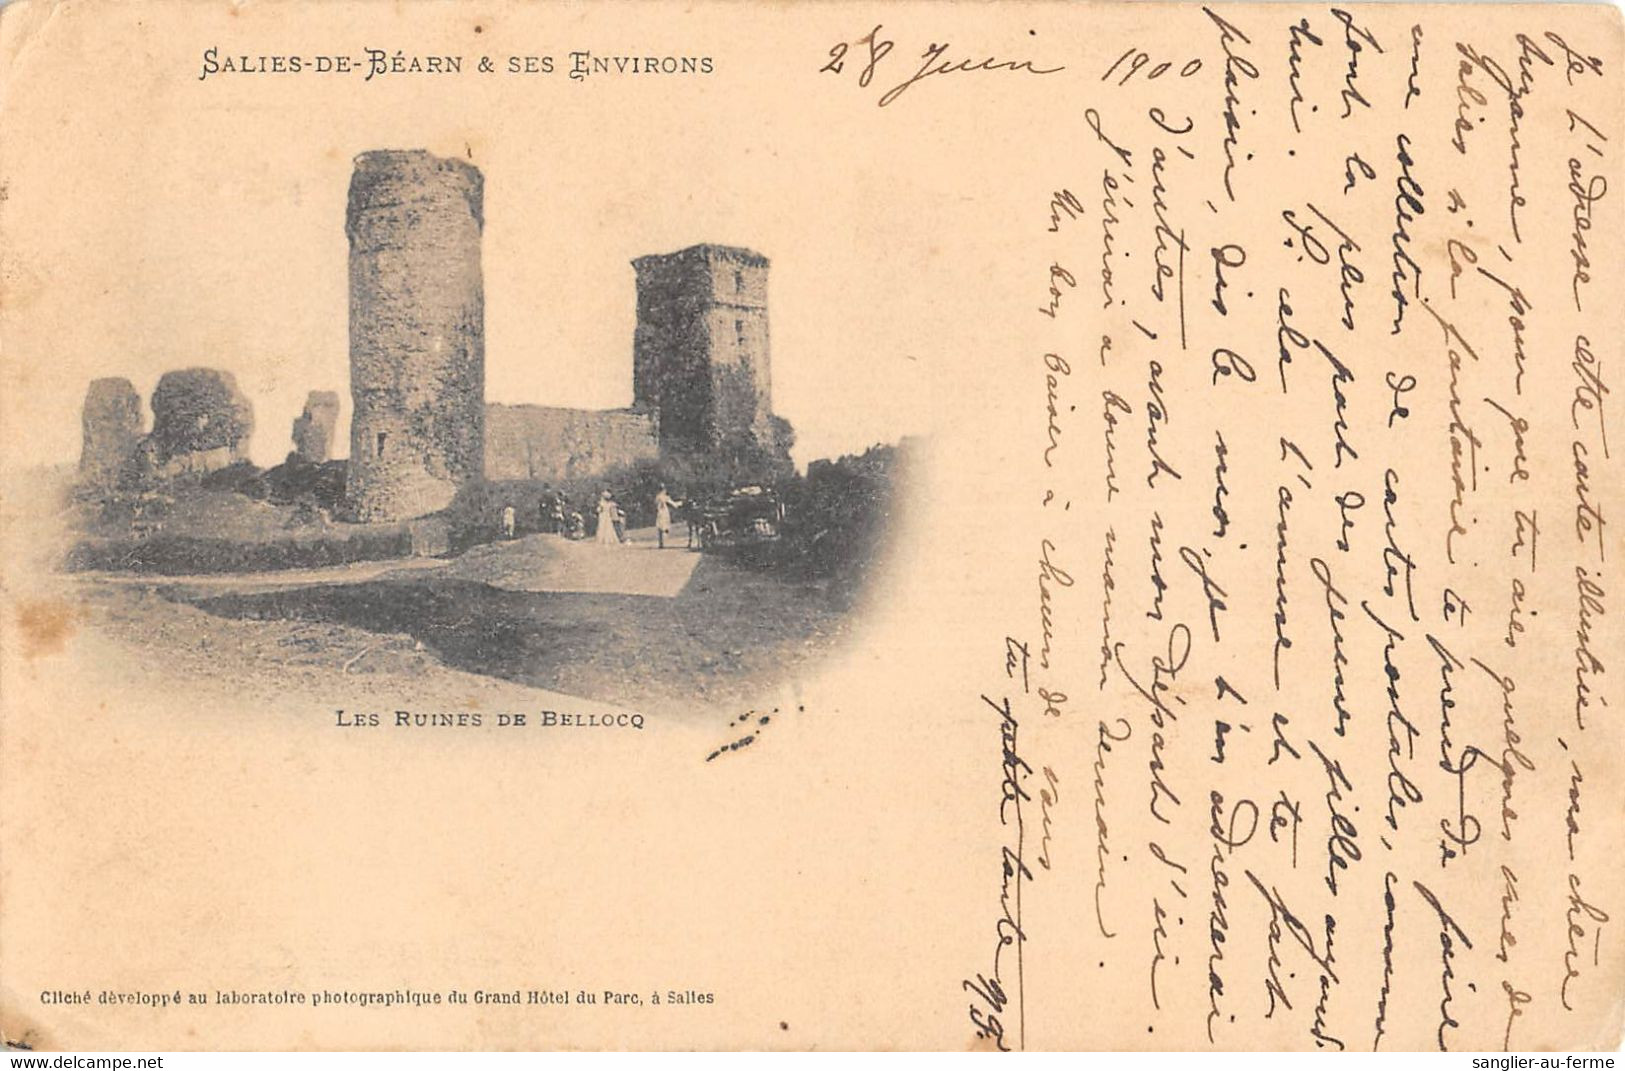 SALIES-DE-BÉARN & SES ENVIRONS
28 Juin 1900
Je t'adresse cette carte illustrée, ma chère
Suzanne, pour que tu aies quelques vues de
Salies si la fantaisie te prend de faire
une collection de cartes postales, comme
font la plus part des jeunes filles aujourd'
hui. Si cela t'amuse et te fait
plaisir, dis le moi, je t'en adresserai
d'autres, avant mon départ d'ici.
J'écrirai a bonne maman demain.
Un bon baiser à chacuns de vous
ta petite tante
LES RUINES DE BELLOCQ
Cliché développé au laboratoire photographique du Grand Hôtel du Parc, à Salies
sanglier-au-ferme